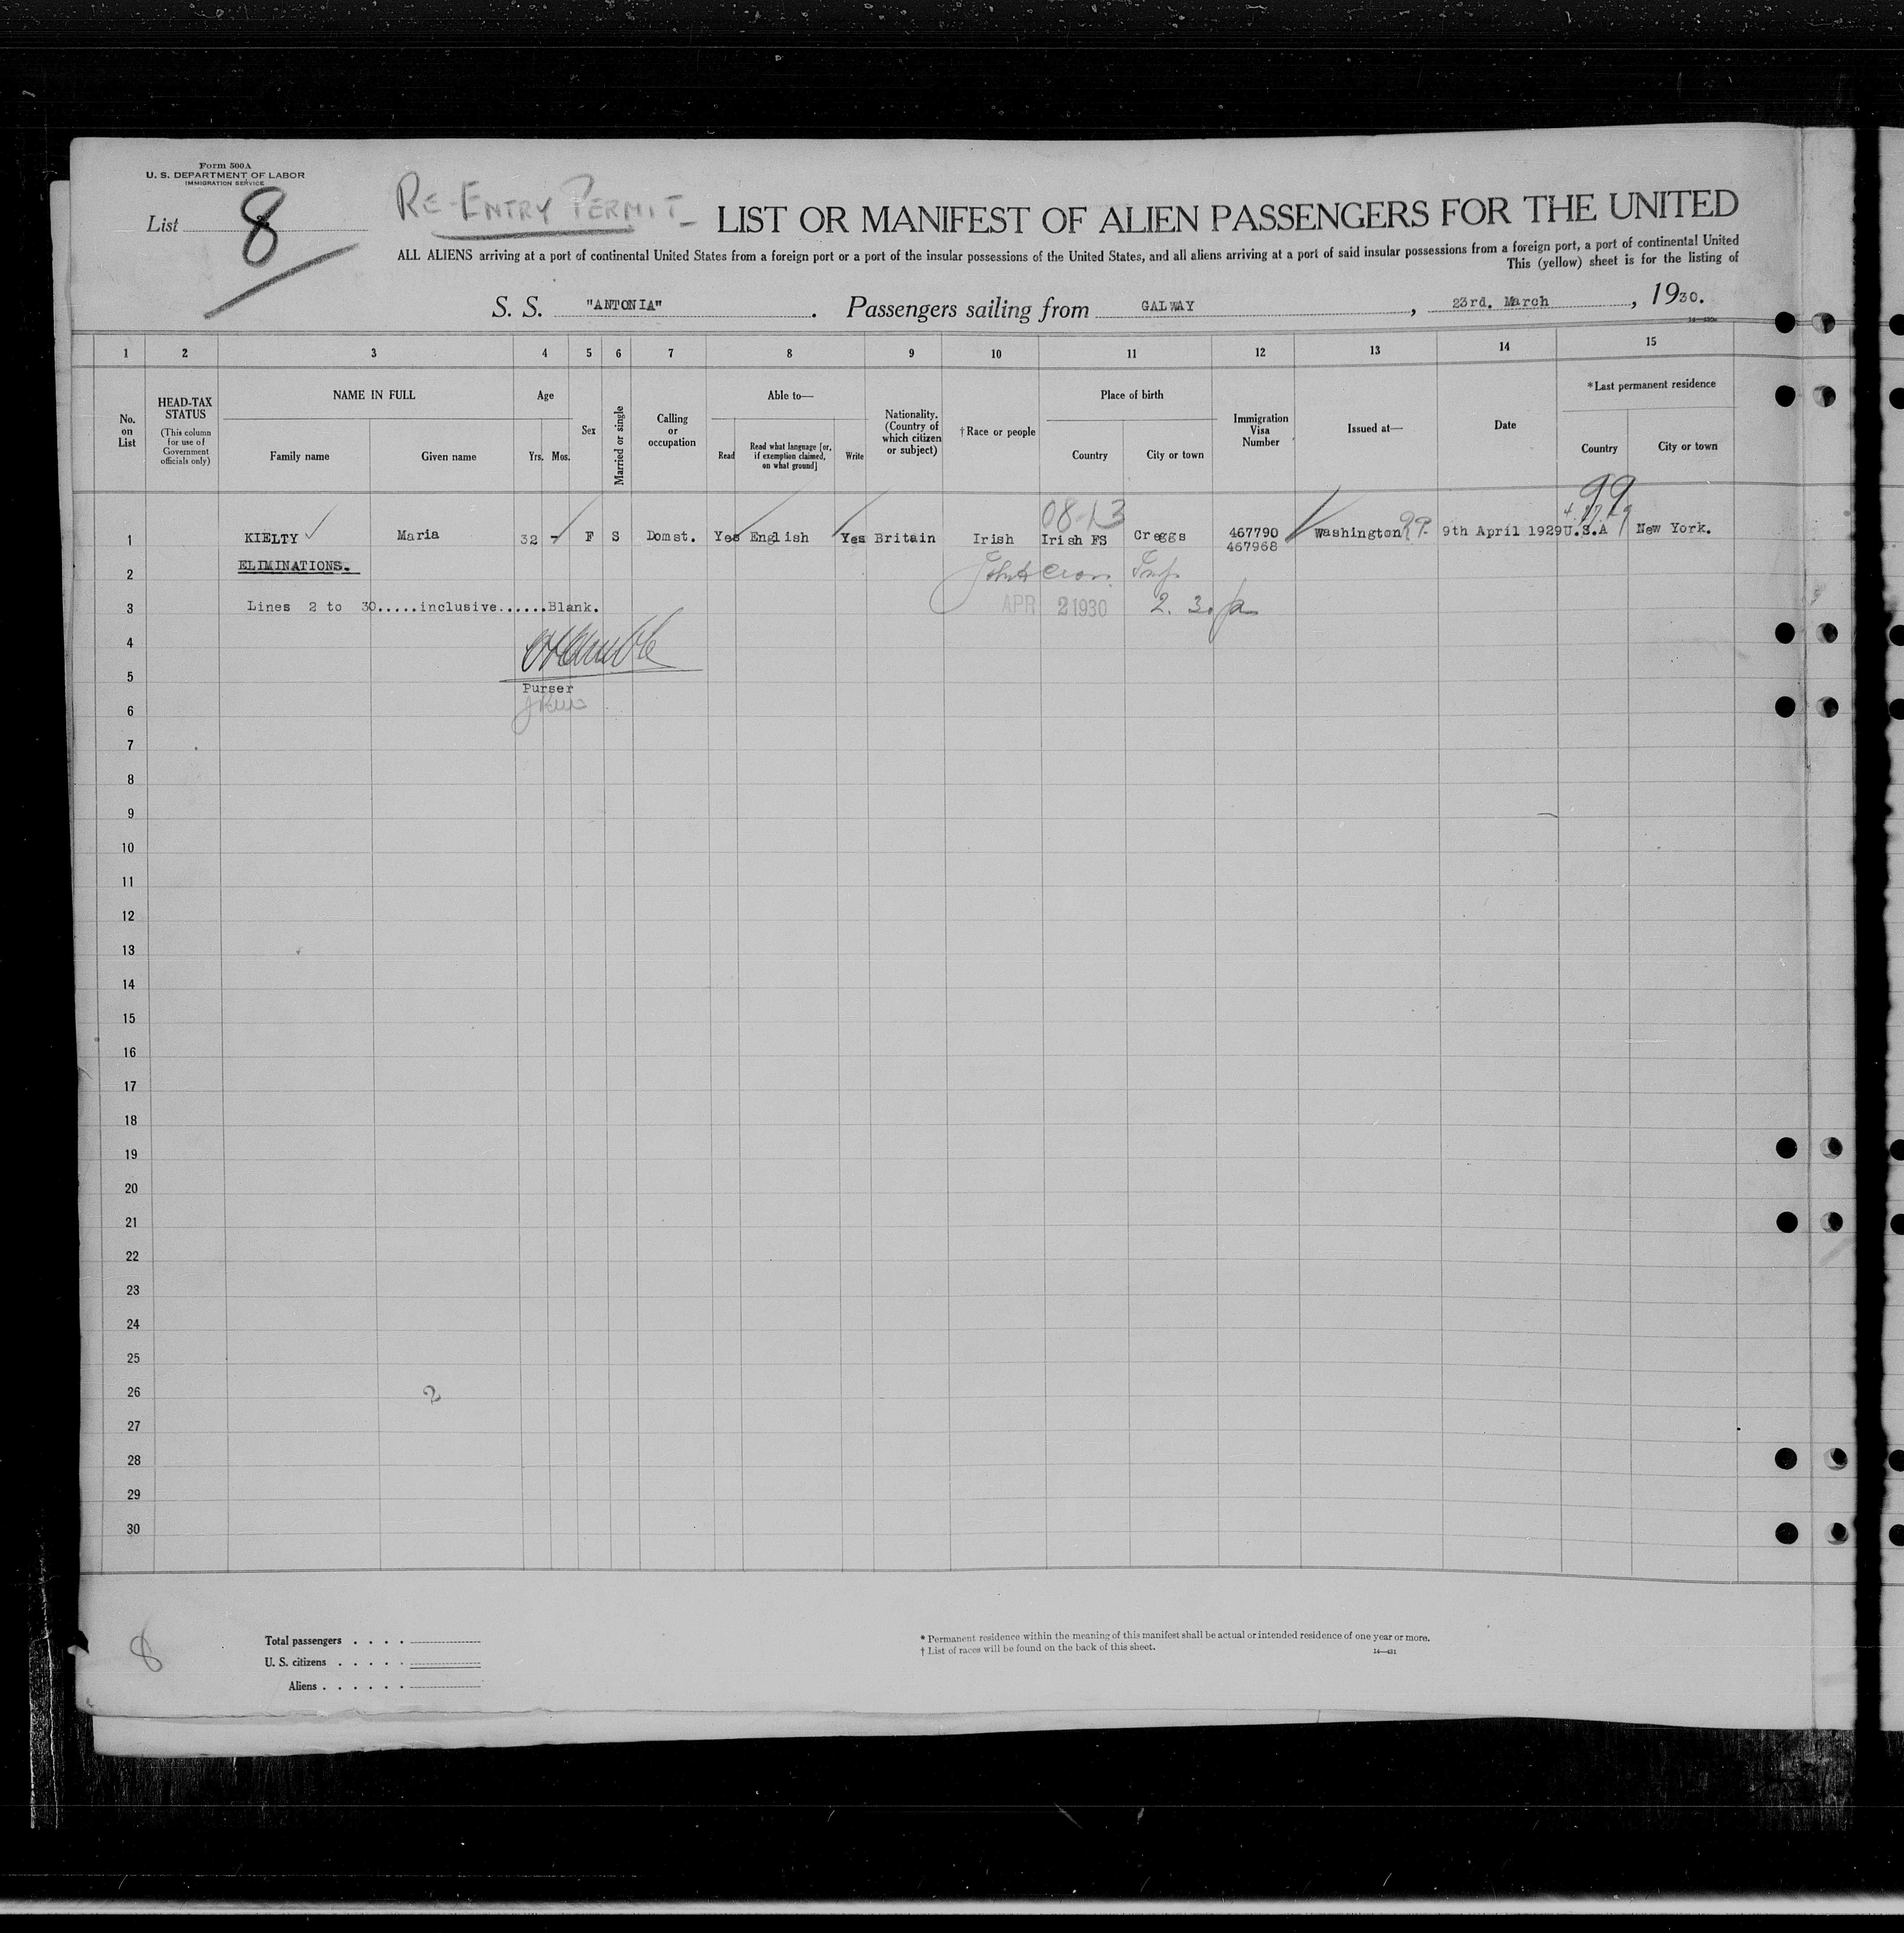 Form 500A
U. S. DEPARTMENT OF LABOR
IMMIGRATION SERVICE
List 8
RE-ENTRY PERMIT
LIST OR MANIFEST OF ALIEN PASSENGERS FOR THE UNITED
ALL ALIENS arriving at a port of continental United States from a foreign port or a port of the insular possessions of the United States, and all aliens arriving at a port of said insular possessions from a foreign port, a port of continental United
This (yellow) sheet is for the listing of
S. S. "ANTONIA". Passengers sailing from GALWAY, 23rd. March, 1930.
1 2 3 4 5 6 7 8 9 10 11 12 13 14 15
No. on List
HEAD-TAX STATUS (This column for use of Government officials only)
NAME IN FULL
Family name Given name
Age
Yrs. Mos.
Sex
Married or single
Calling or occupation
Able to—
Read Read what language [or, if exemption claimed, on what ground] Write
Nationality. (Country of which citizen or subject)
†Race or people
Place of birth
Country City or town
Immigration Visa Number
Issued at—
Date
*Last permanent residence
Country City or town
99
08-13
1 KIELTY Maria 32 - F S Domst. Yes English Yes Britain Irish Irish FS Creggs 467790 Washington 9th April 1929 U.S.A New York.
467968
2 ELIMINATIONS.
3 Lines 2 to 30.....inclusive......Blank.
APR 2 1930
4
5
Purser
6
7
8
9
10
11
12
13
14
15
16
17
18
19
20
21
22
23
24
25
26
2
27
28
29
30
8
Total passengers . . . .
U. S. citizens . . . . .
Aliens . . . . . .
* Permanent residence within the meaning of this manifest shall be actual or intended residence of one year or more.
† List of races will be found on the back of this sheet.
14—431